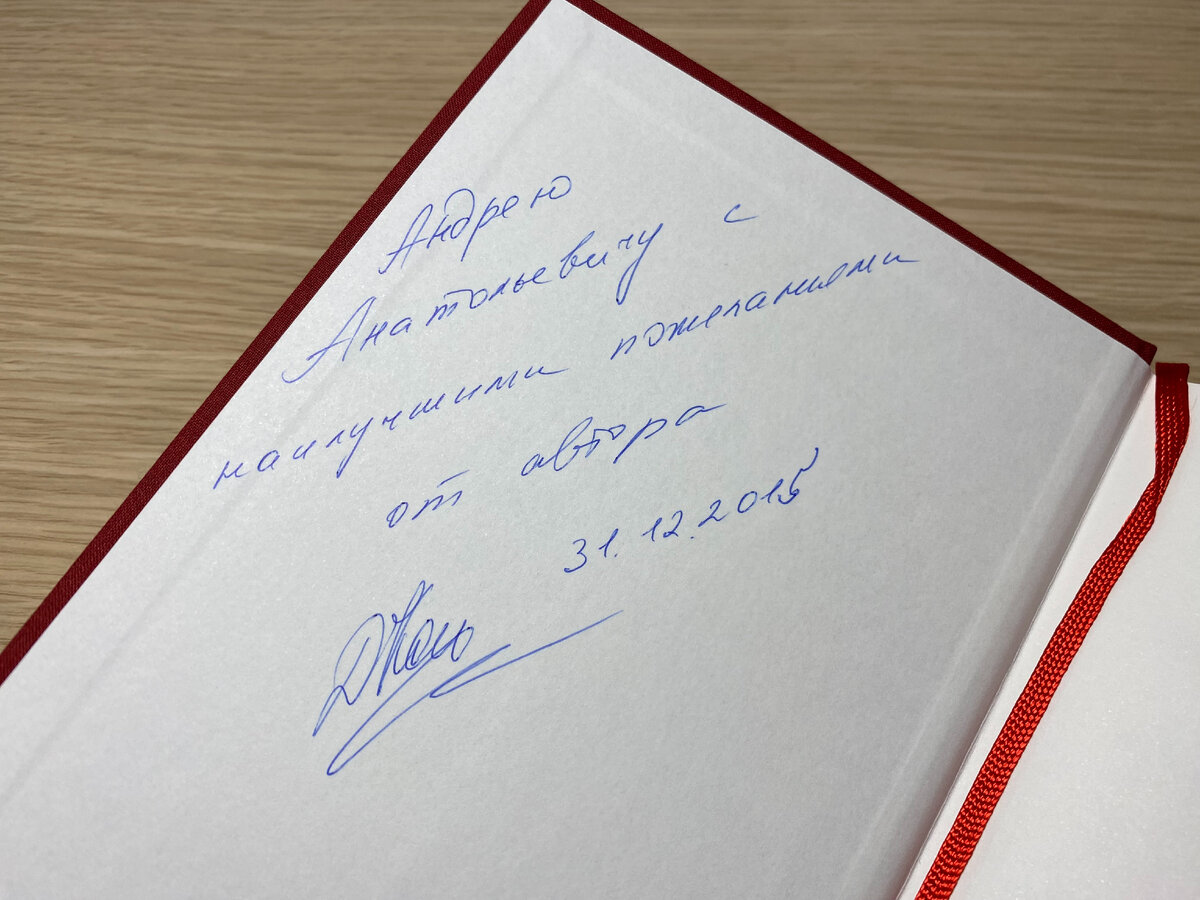 Андрею
Анатольевичу с
наилучшими пожеланиями
от автора
31.12.2015